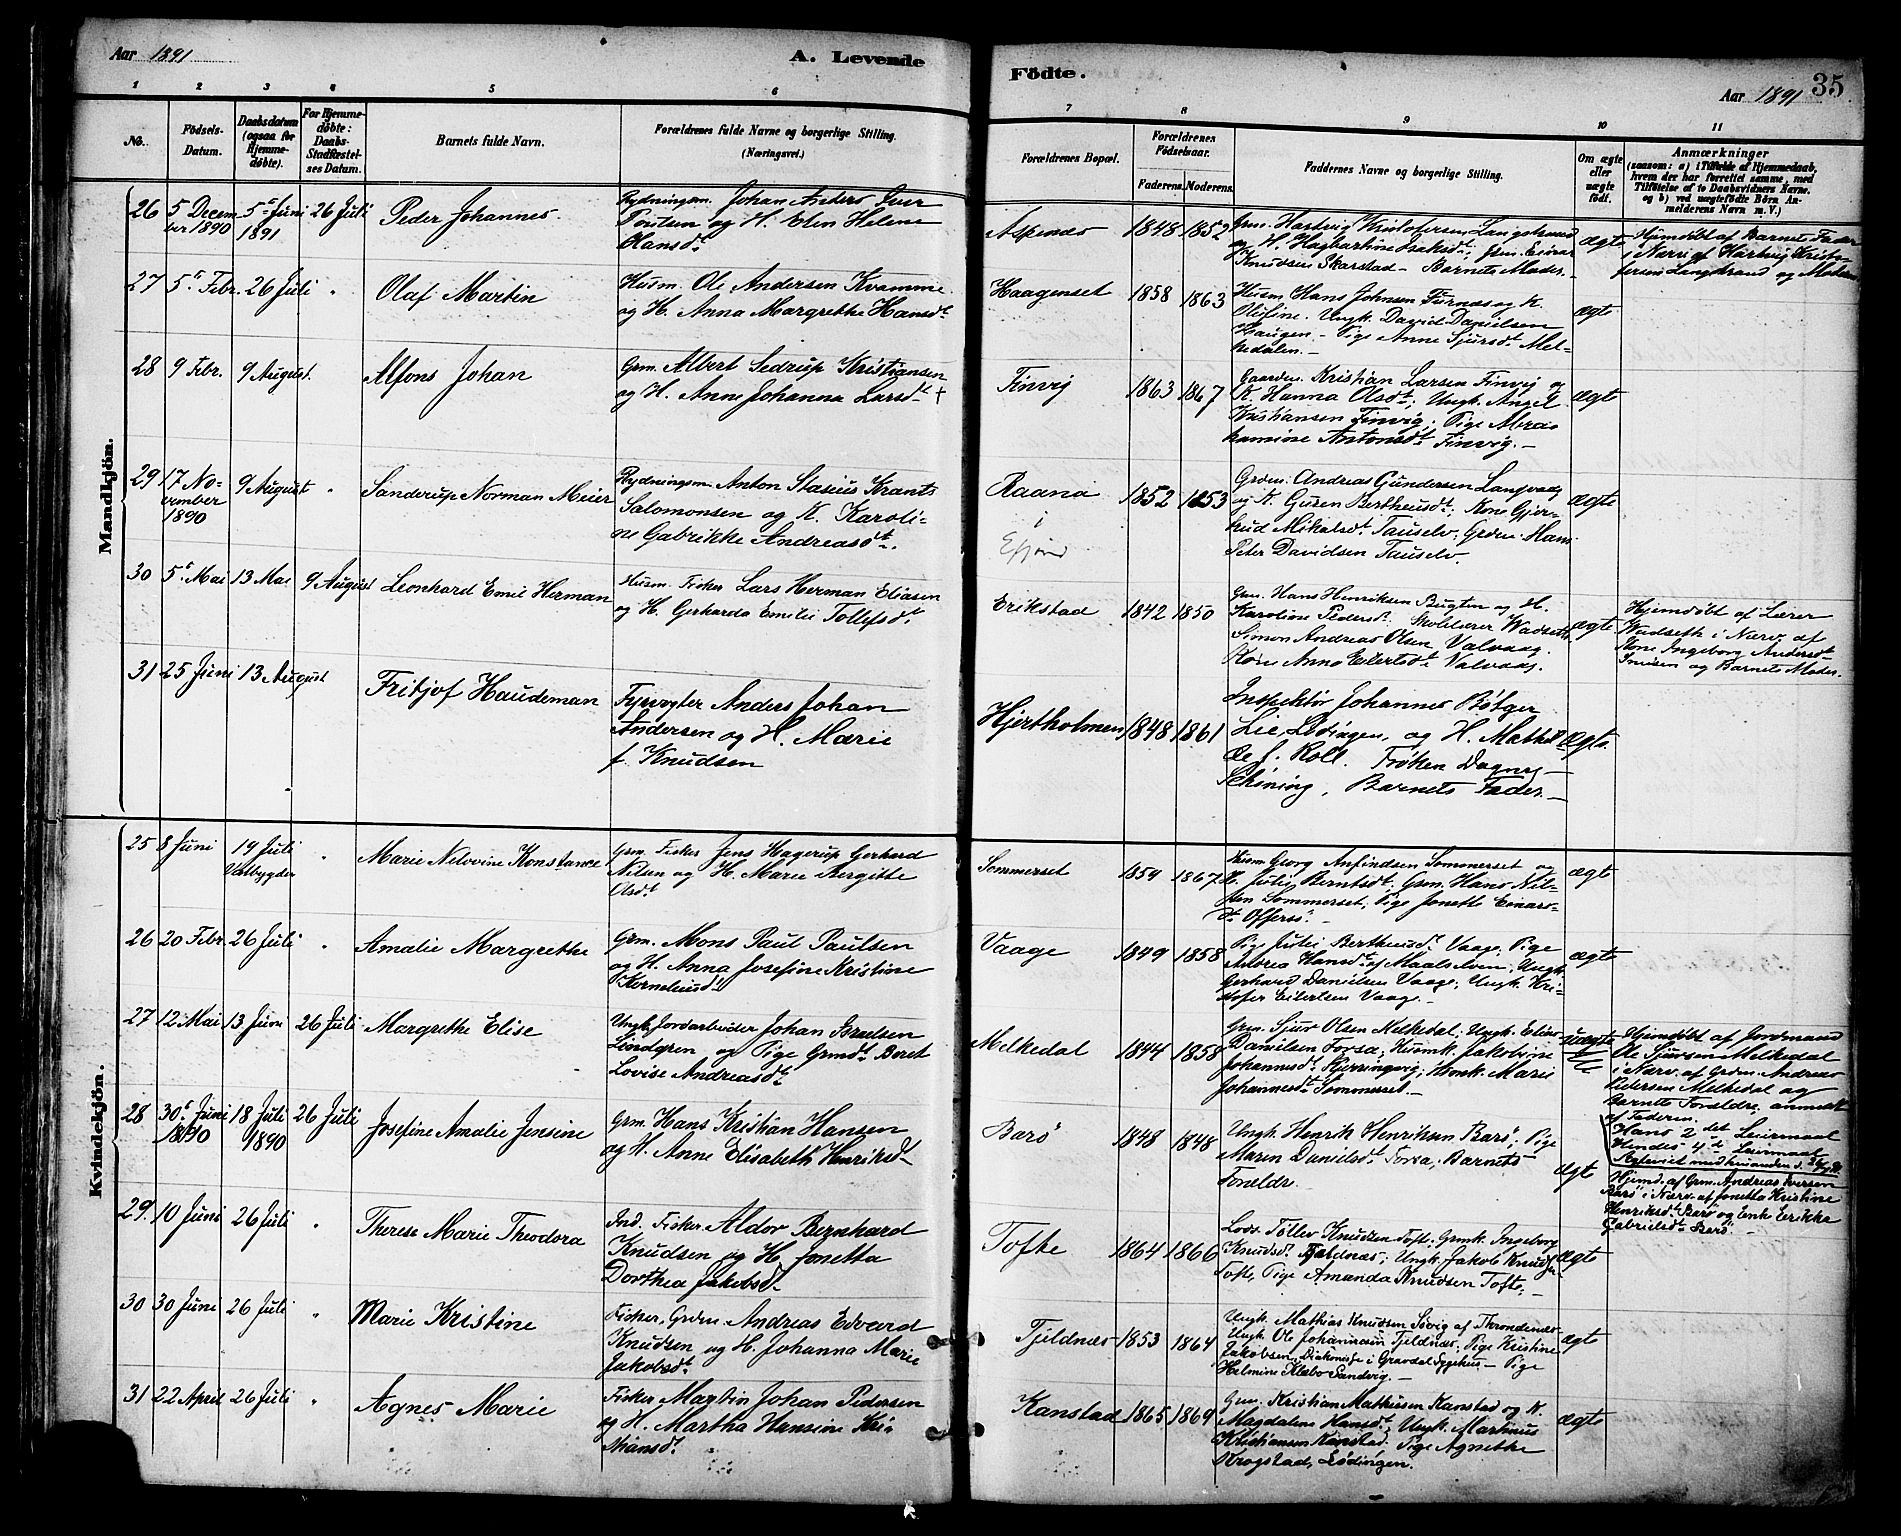 Aar 1891
A. Levende
Födte.
Aar 1891
35
1 2 3 4 5 6 7 8 9 10 11
No.
Födsels-
Datum.
Daabsdatum
(ogsaa for
Hjemme-
döbte).
For Hjemme-
döbte:
Daabs-
Stadfæstel-
ses Datum.
Barnets fulde Navn.
Forældrenes fulde Navne og borgerlige Stilling.
(Næringsvei.)
Forældrenes Bopæl.
Forældrenes
Födselsaar.
Faderens. Moderens.
Faddernes Navne og borgerlige Stilling.
Om ægte
eller
uægte
födt.
Anmærkninger
(saasom: a) i Tilfælde af Hjemmedaab,
hvem der har forrettet samme, med
Tilföielse af to Daabsvidners Navne,
og b) ved uægtefödte Börn An-
melderens Navn m. V.)
Mandkjön.
26
5 Decem
ber 1890
5 Juni
1891
26 Juli
Peder Johannes
Rydningsm. Johan Anders
og H. Elen Helene
Hansdt
1848 1852
Gm. Hartvig Kristofersen Langstrand
og H. Hagbartine Isaksdt; Einar
Knudsen Skarstad - Barnets Moder.
ægte
Hjemdøbt af Barnets Fader
i Nærv. af Hartvig Kristo-
fersen Langstrand og Moderen
27
5 Febr.
26 Juli
"
Olaf Martin
Husm. Ole Andersen Kvamme
og H. Anna Margrethe Hansdt
Haagenset
1858 1863
Husm. Hans Johnsen Furnæs og K.
Olufine. Ungk. David Danielsen
Haugen. - Pige Anne Sjursdt Mel-
kedalen. -
ægte
28
9 Febr.
9 August.
Alfons Johan
Grm. Albert Sedrup Kristiansen
og H. Anne Johanna Larsdt +
Finvij
1863 1867
Gaardm. Kristian Larsen Finvij og
K. Hanna Olsdt; Ungk. Angel
Kristiansen Finvig; Pige Abra-
hamine Antonsdt Finvig. -
ægte
29
17 No-
vember
1890
9 August
"
Sanderup Norman Meier
Rydningsm. Anton Stasius Krants
Salomonsen og K. Karoli-
ne Gabrikke Andreasdt.
Raana
i
Efjord
1852 1853
Grdm. Andreas Gundersen Langvaag
og K. Guren Bertheusdt; Kone Gjer-
trud Mikalsdt Tauselv. Grdm. Hans
Peter Davidsen Tauselv.
ægte
30
5 Mai
13 Mai
9 August
Leonhard Emil Herman
Husm. Fisker Lars Herman Eliasen
og H. Gerharda Emilie Tollefsdt
Erikstad
1842 1850
Gm. Hans Henriksen Bugten og H.
Karoline Pedersdt. Skolelærer Wadseth
Simon Andreas Olsen Valvaag.
Kone Anna Eilertsdt Valvaag.
ægte
Hjemdøbt af Lærer
Wadseth i Nærv. af
Kone Ingeborg Andersdt
og Barnets Moder.
31
25 Juni
13 August
Fritjof Haudeman
Fyrvogter Anders Johan
Andersen og H. Marie
f. Knudsen
Hjertholmen
1848 1861
Inspektør Johannes Bøtger
Lie, Lødingen, og H. Mathil-
de f. Roll. Frøken Dagny
Schining, Barnets Fader. -
ægte.
Kvindekjön.
25
8 Juni
19 Juli
Vatbygden
"
Marie Nilovine Konstance
Grm. Fisker Jens Hagerup Gerhard
Nilsen og H. Marie Bergitte
Olsdt
Sommerset
1859 1867
Husm. Georg Anfindsen Sommerset og
H. Julie Berntsdt; Grm. Hans Nil-
sen Sommerset; Pige Jonette Einars-
dt Offersø. -
ægte
26
20 Febr.
26 Juli
"
Amalie Margrethe
Grm. Mons Paul Paulsen
og H. Anna Josefine Kristine
Korneliusdt
Vaage
1849 1858
Pige Julie Bertheusdt Vaage; Pige
Andrea Hansdt af Maalselven; Ungk.
Gerhard Danielsen Vaage; Ungk. Kri-
stofer Eilertsen Vaage. -
ægte
27
12 Mai
13 Juni
26 Juli
Margrethe Elise
Ungk. Jordarbeider Johan Israelsen
Lindgren og Pige Grmdt Beret
Lovise Andreasdt
Melkedal
1844 1858
Grm. Sjur Olsen Melkedal; Ungk. Elias
Danielsen Forsa; Husmk. Jakobine
Johannesdt Hjerringvig; Marie
Johannesdt Sommerset. -
uægte
Hjemdøbt af Gordmand
Ole Sjursen Melkedal
i Nærv. af Grdm. Andreas
Pedersen Melkedal og
Barnets Foreldre, anmeldt
af Faderen; det
Hans 2det Leiermaal
Hendes 4de Leiermaal
28
30 Juni
1890
18 Juli
1890
26 Juli
Josefine Amalie Jensine
Grm. Hans Kristian Hansen
og H. Anne Elisabeth Henriksdt
Barø
1848 1848
Ungk. Henrik Henriksen Barø; Pige
Maren Danielsdt Forsa, Barnets
Foreldre.
ægte
Hjemd. af Grm. Andreas Iversen
Barø i Nærv. af Jonetta Kristine
Henriksdt Barø og Enke Erikka
Gabrielsdt Barø. -
29.
10 Juni
26 Juli
"
Therese Marie Theodora
Ind. Fisker Aldor Bernhard
Knudsen og H. Jonetta
Dorthea Jakobsdt
Tofte
1864 1866
Lods Tollev Knudsen Toft; Grmk. Ingeborg
Knudsdt Tjeldnæs; Ungk. Jakob Knudsen
Tofte, Pige Amanda Knudsen Tofte; -
ægte
30
30 Juni
26 Juli
"
Marie Kristine
Fisker, Grdm. Andreas Edvard
Knudsen og H. Johanna Marie
Jakobsdt
Tjeldnæs
1853 1864
Ungk. Mathias Knudsen Søvig af Throndenæs
Ungk. Ole Johannesen Tjeldnæs; Pige Kristine
Jakobsen, Diakonisse i Gravdal Sygehus - Pige
Helmine Klæbo Sandvig. -
ægte
31
22 April
26 Juli
"
Agnes Marie
Fisker Martin Johan Pedersen
og H. Martha Hansine Kri-
stiansdt
Kanstad
1865 1869
Gm. Kristian Mathisen Kanstad og K.
Magdalene Hansdt; Ungk. Martinus
Kristiansen Kanstad. Pige Agnethe
Krogstad, Lødingen.
ægte